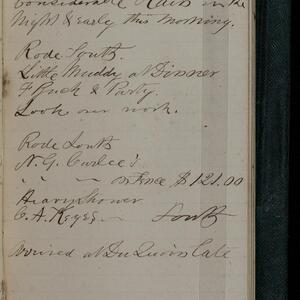 considerable Rain in the
Night & early this morning.
Rode South.
Little Muddy at Dinner
& Party.
Look over work.
Rode South
N. G. Curlee's
" " - on Fence $121.00
Heavy Shower
C. A. Keyes - South
Arrived at Du Quoin Late